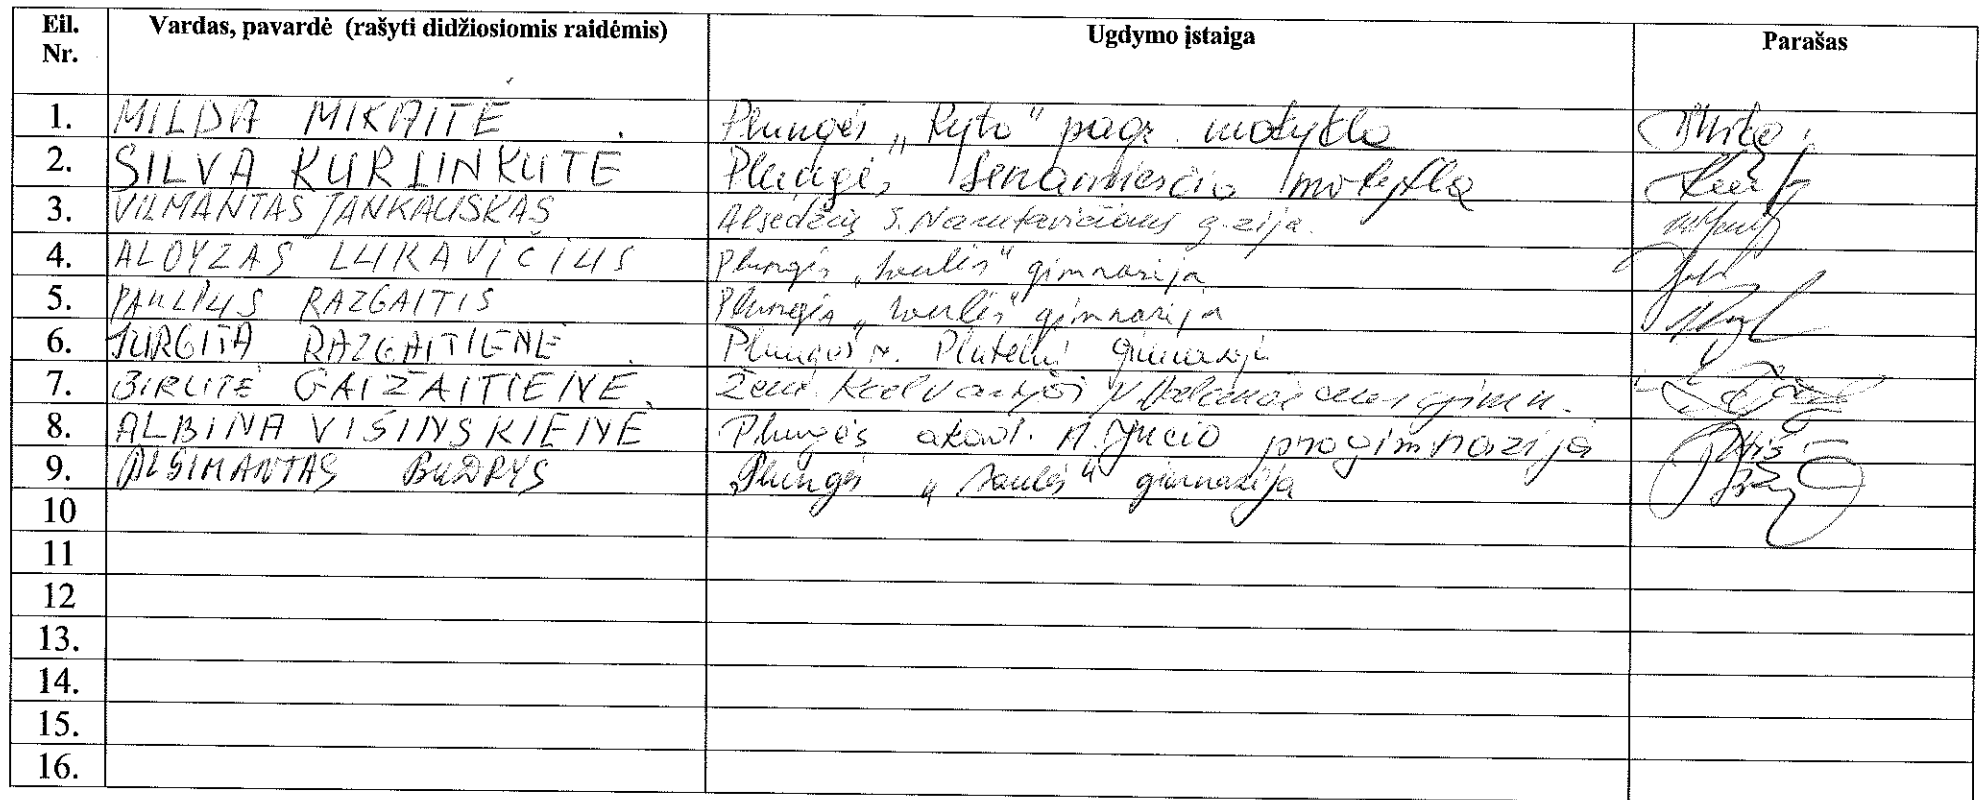 Eil. Nr. Vardas, pavardė (rašyti didžiosiomis raidėmis) Ugdymo įstaiga Parašas
1. MILDA MIKAITĖ Plungės „Ryto“ pagr. mokykla
2. SILVA KURLINKUTĖ Plungės Senamiesčio mokykla
3. VILMANTAS JANKAUSKAS Alsėdžių S. Narutavičiaus g-zija.
4. ALOYZAS LUKAVIČIUS Plungės „Saulės“ gimnazija
5. PAULIUS RAZGAITIS Plungės „Saulės“ gimnazija
6. JURGITA RAZGAITIENĖ Plungės r. Platelių gimnazija
7. BIRUTĖ GAIŽAITIENĖ Žem. Kalvarijos gimn.
8. ALBINA VIŠINSKIENĖ Plungės akad. A. Jucio progimnazija
9. ALGIMANTAS BUDRYS Plungės „Saulės“ gimnazija
10
11
12
13.
14.
15.
16.